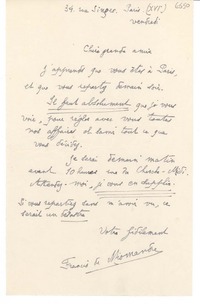 34, rue Singer. Paris (XVIe)
vendredi
6650
Chère grande amie
J'apprends que vous êtes à Paris,
et que vous repartez demain soir.
Il faut absolument que je vous
voie, pour régler avec vous toutes
nos affaires et aussi tout ce que
vous
Je serai demain matin
avant 10 heures rue du Cherche-Midi.
Attendez-moi, je vous en supplie.
Si vous repartiez sans m'avoir vu, ce
serait un désastre
Votre fidèlement
Francis de Miomandre